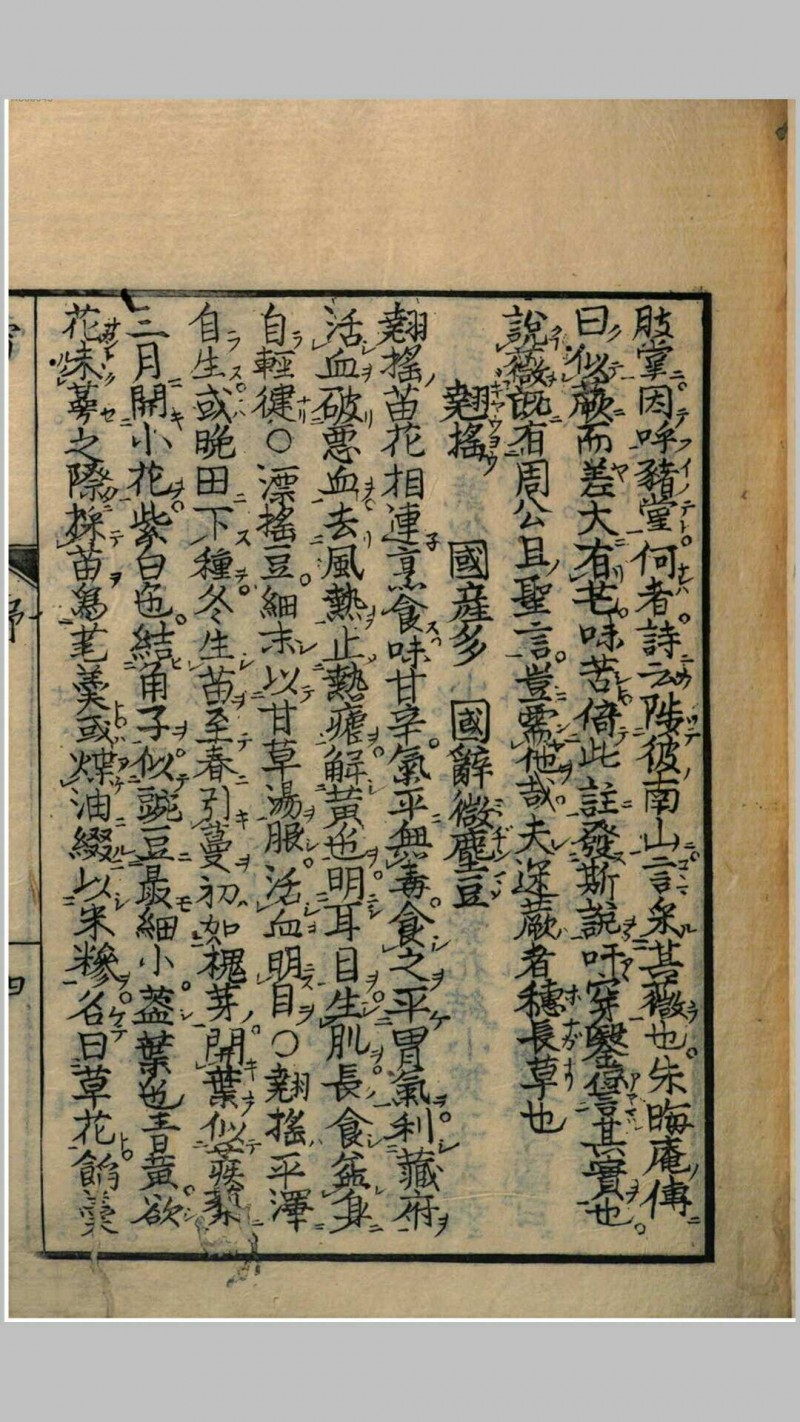 肢掌因呼豬堂何者詩云陟彼南山言采其薇也朱晦庵傳
曰似蕨而差大有芒味苦倚此註發斯說吁穿鑿得言其實也
說薇既有周公且聖言豈需他哉夫迷蕨者穗長草也
翹搖 國産多 國辭微塵豆
翹搖苗花相連烹食味甘辛氣平無毒食之平胃氣利藏府
活血破悪血去風熱止熱瘧解黃色明耳目生肌長食益身
自輕健○漂搖豆細末以甘草湯服活血明目○翹搖平澤
自生或晩田下種冬生苗至春引蔓初如槐芽開葉似蒺蔾
三月開小花紫白色結甬子似豌豆最細小蓋葉色青黃欲
花未蕚之際採苗為芼羹或煠油綴以米糝名曰草花餡羹
四